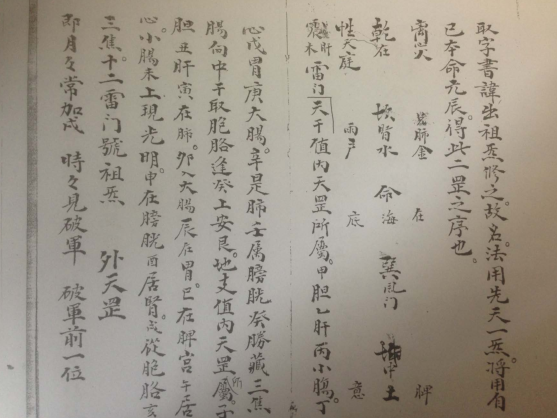 取字書諱出祖炁修之。故名法用先天一炁。將用有
已本命元辰。得此二罡之序也。
離火 兌肺金 在 脾
乾在 坎腎水 命海 巽風门 坤中土
性天廷 雨户 底 意
震木 肝 雷门 天干值内天罡所屬。甲胆乙肝丙小腸。丁
心戊胃庚大腸。辛是肺壬属膀胱癸勝藏三焦
腸向中干取胞胳逢癸上安艮。地支值内天罡所屬。子
胆丑肝寅在肺。卯入大腸辰在胃。巳在脾宫午居
心。小腸未上現光明。申在膀胱酉居腎。戌從胞胳亥
三焦。十二雷门號祖炁 外天罡
即月々常加戌 時々見破軍 破軍前一位